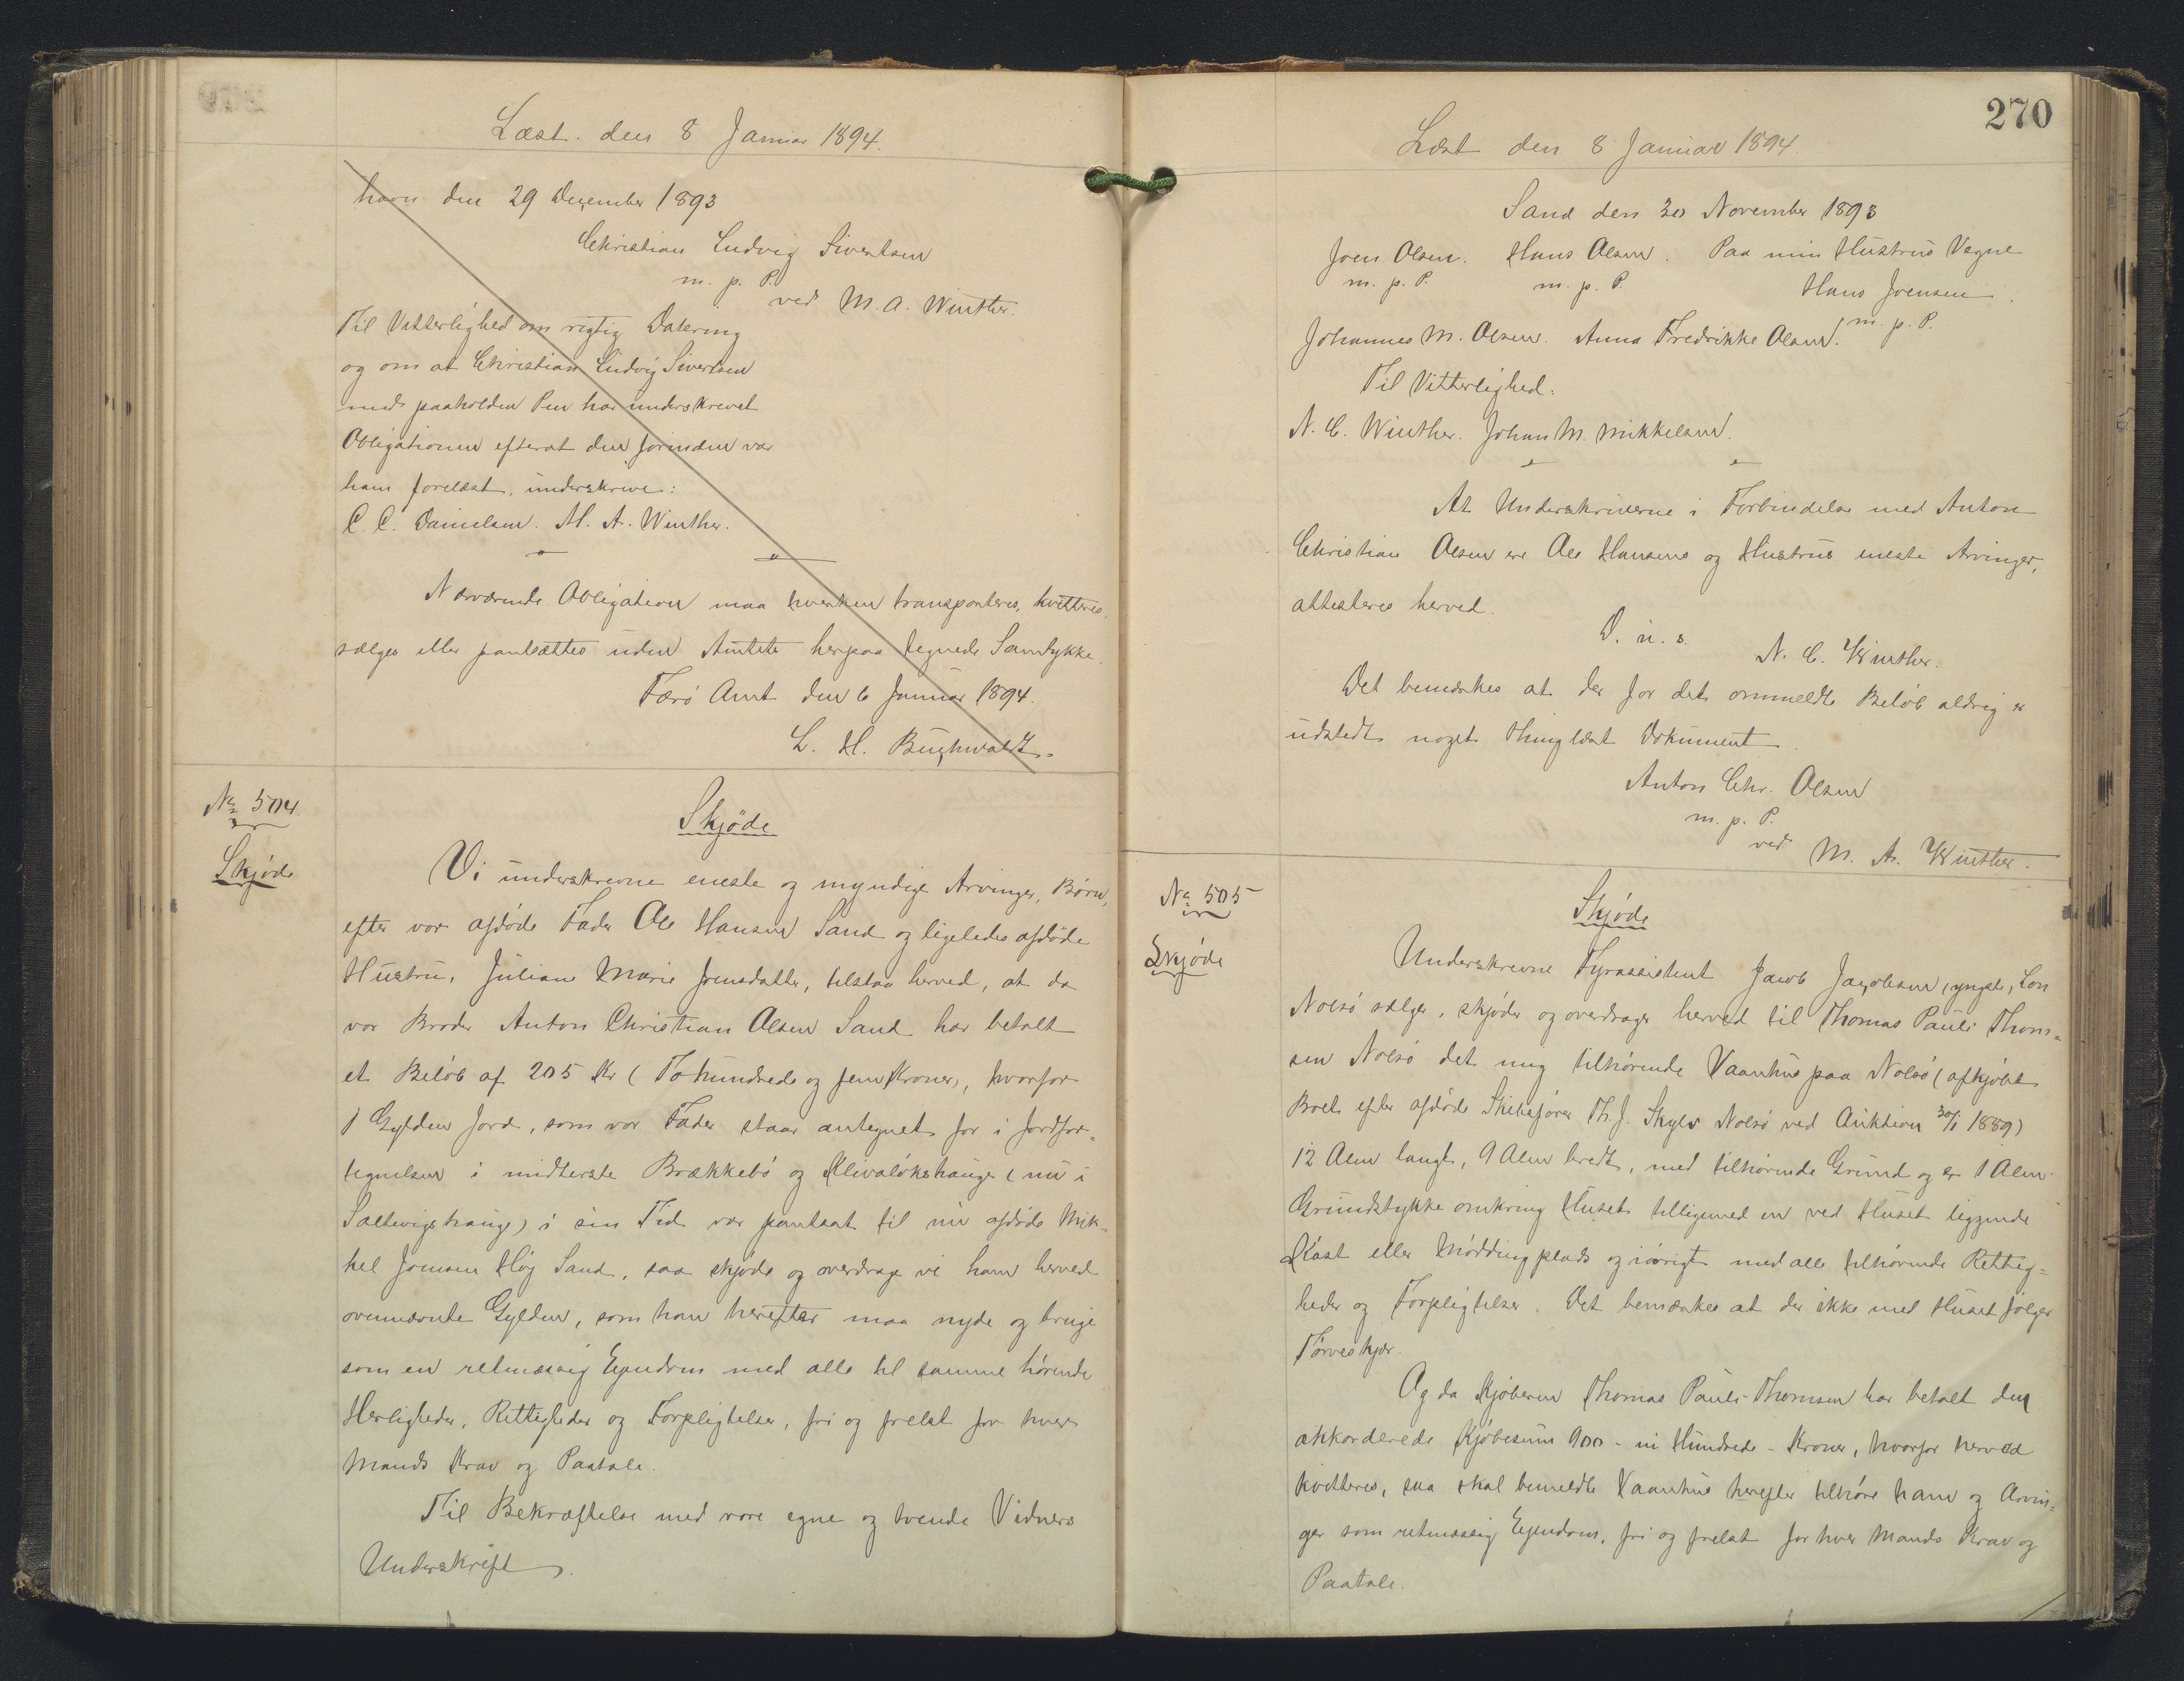 Læst den 8 Januar 1894.
havn den 29 December 1893
Christian Ludvig Sivertsen
m. p. P.
ved M. A. Winther.
Til Vitterlighed om rigtig Datering
og om at Christian Ludvig Sivertsen
med paaholden Pen har underskrevet
Obligationen efterat den forinden var
ham forelæst, underskrive:
C. C. Danielsen. M. A. Winther.
Nærværende Obligation maa hverken transporteres, kvitteres,
sælges eller pantsættes uden Amtets herpaa tegnede Samtykke.
Færø Amt den 6 Januar 1894.
L. H. Buchwaldt.
No 504.
Skjøde
Skjøde
Vi underskrevne eneste og myndige Arvinger, Børn,
efter vor afdøde Fader Ole Hansen Sand og ligeledes afdøde
Hustru, Juliane Marie Joensdatter, tilstaa herved, at da
vor Broder Anton Christian Olsen Sand har betalt
et Beløb af 205 Kr (To hundrede og fem Kroner), hvorfor
1 Gylden Jord, som vor Fader staar antegnet for i Jordfor-
tegnelsen i midterste Brækkebø og Klivaløkshauge (nu i
Saltvigshauge) i sin Tid var pantsat til nu afdøde Mik-
kel Joensen Høj Sand, saa skjøde og overdrage vi ham herved
ovennævnte Gylden, som han herefter maa nyde og bruge
som en retmæssig Ejendom med alle til samme hørende
Herligheder, Rettigheder og Forpligtelser, fri og frelst for hver
Mands Krav og Paatale.
Til Bekræftelse med vore egne og tvende Vidners
Underskrift.
270
Læst den 8 Januar 1894.
Sand den 30 November 1893
Joen Olsen. Hans Olsen. Paa min Hustrus Vegne
m. p. P. m. p. P. Hans Joensen.
Johannes M. Olsen. Anna Fredrikke Olsen. m. p. P.
Til Vitterlighed:
N. C. Winther. Johan M. Mikkelsen.
At Underskriverne i Forbindelse med Anton
Christian Olsen ere Ole Hansens og Hustrus eneste Arvinger,
attesteres herved.
D. u. s.
N. C. Winther.
Det bemærkes at der for det ommeldte Beløb aldrig er
udstedt noget thinglæst Dokument.
Anton Chr. Olsen
m. p. P.
ved M. A. Winther.
No 505
Skjøde
Skjøde
Underskrevne Fyrassistent Jacob Jacobsen, yngste, Søn
Nolsø sælger, skjøder og overdrager herved til Thomas Pauli Thom-
sen Nolsø det mig tilhørende Vaanhus paa Nolsø (afkjøbt
Boet efter afdøde Skibsfører Th. J. Skylv Nolsø ved Auktion 30/1 1889)
12 Alen langt, 9 Alen bredt, med tilhørende Grund og er 1 Alen
Grundstykke omkring Huset tilligemed en ved Huset liggende
Kast eller Møddingplads og iøvrigt med alle tilhørende Rettig-
heder og Forpligtelser. Det bemærkes at der ikke med Huset følger
Tørveskjær.
Og da Kjøberen Thomas Pauli Thomsen har betalt den
akkorderede Kjøbesum 900 - ni Hundrede - Kroner, hvorfor herved
kvitteres, saa skal bemeldte Vaanhus herefter tilhøre ham og Arvin-
ger som retmæssig Ejendom, fri og frelst for hver Mands Krav og
Paatale.